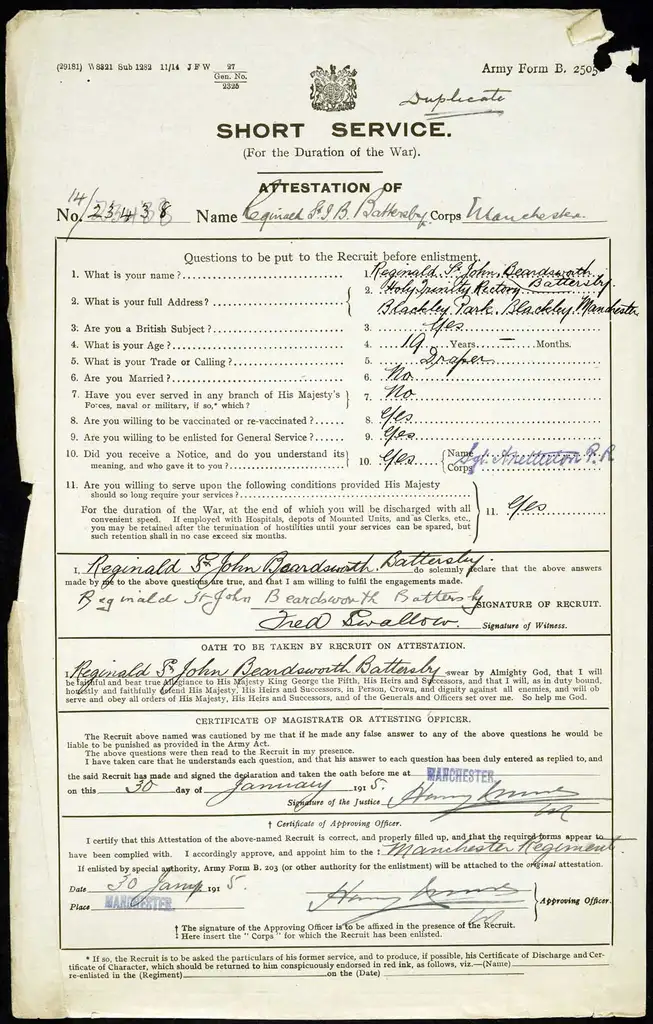 (29181) W8821 Sub 1282 11/14 J F W 27
Gen. No.
2325
Army Form B. 2505
Duplicate
SHORT SERVICE.
(For the Duration of the War).
ATTESTATION OF
14/
No. 23438 Name Reginald St J B. Battersby Corps Manchester
Questions to be put to the Recruit before enlistment.
1. What is your name? 1. Reginald St John Beardsworth Battersby
2. What is your full Address? 2. Holy Trinity Rectory
Blackley Park. Blackley. Manchester
3. Are you a British Subject? 3. Yes
4. What is your Age? 4. 19 Years — Months.
5. What is your Trade or Calling? 5. Draper
6. Are you Married? 6. No
7. Have you ever served in any branch of His Majesty's 7. No
Forces, naval or military, if so,* which?
8. Are you willing to be vaccinated or re-vaccinated? 8. Yes
9. Are you willing to be enlisted for General Service? 9. Yes
10. Did you receive a Notice, and do you understand its 10. Yes Name Sgt.
meaning, and who gave it to you? Corps
11. Are you willing to serve upon the following conditions provided His Majesty
should so long require your services?
For the duration of the War, at the end of which you will be discharged with all 11. Yes
convenient speed. If employed with Hospitals, depots of Mounted Units, and as Clerks, etc.,
you may be retained after the termination of hostilities until your services can be spared, but
such retention shall in no case exceed six months.
I, Reginald St John Beardsworth Battersby. do solemnly declare that the above answers
made by me to the above questions are true, and that I am willing to fulfil the engagements made.
Reginald St John Beardsworth Battersby SIGNATURE OF RECRUIT.
Fred Swallow. Signature of Witness.
OATH TO BE TAKEN BY RECRUIT ON ATTESTATION.
I, Reginald St John Beardsworth Battersby swear by Almighty God, that I will
be faithful and bear true Allegiance to His Majesty King George the Fifth, His Heirs and Successors, and that I will, as in duty bound,
honestly and faithfully defend His Majesty, His Heirs and Successors, in Person, Crown, and dignity against all enemies, and will ob
serve and obey all orders of His Majesty, His Heirs and Successors, and of the Generals and Officers set over me. So help me God.
CERTIFICATE OF MAGISTRATE OR ATTESTING OFFICER.
The Recruit above named was cautioned by me that if he made any false answer to any of the above questions he would be
liable to be punished as provided in the Army Act.
The above questions were then read to the Recruit in my presence.
I have taken care that he understands each question, and that his answer to each question has been duly entered as replied to, and
the said Recruit has made and signed the declaration and taken the oath before me at MANCHESTER.
on this 30 day of January 1915.
Signature of the Justice
† Certificate of Approving Officer.
I certify that this Attestation of the above-named Recruit is correct, and properly filled up, and that the required forms appear to
have been complied with. I accordingly approve, and appoint him to the ‡ Manchester Regiment.
If enlisted by special authority, Army Form B. 203 (or other authority for the enlistment) will be attached to the original attestation.
Date 30 1915.
Place MANCHESTER. Approving Officer.
† The signature of the Approving Officer is to be affixed in the presence of the Recruit.
‡ Here insert the "Corps" for which the Recruit has been enlisted.
* If so, the Recruit is to be asked the particulars of his former service, and to produce, if possible, his Certificate of Discharge and Cer-
tificate of Character, which should be returned to him conspicuously endorsed in red ink, as follows, viz.—(Name)
re-enlisted in the (Regiment) on the (Date)